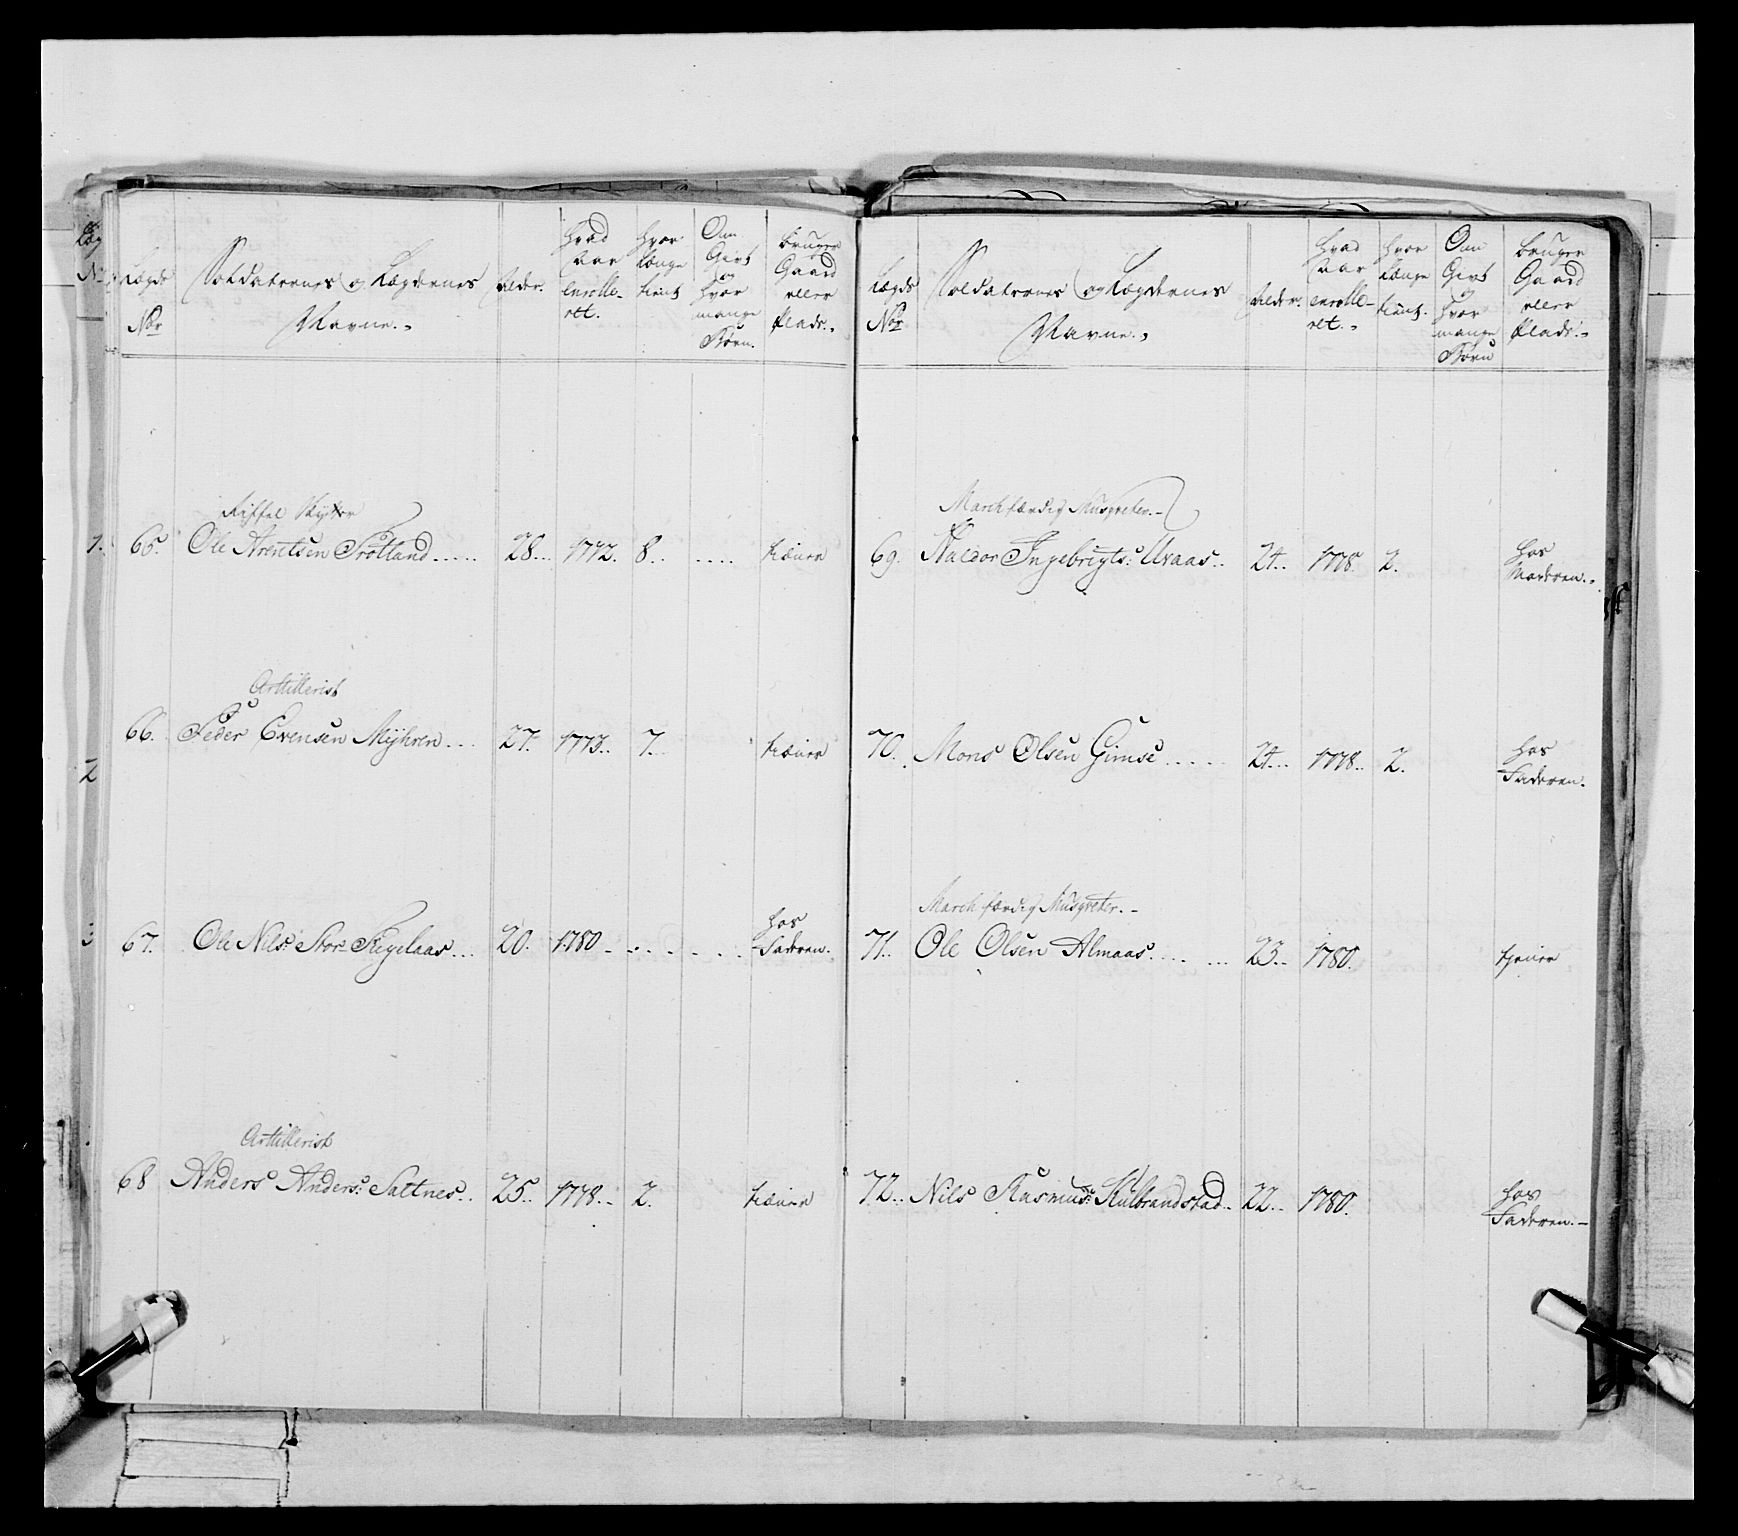 Lægds Nor
Soldaternes og Lægdernes Navne.
Alder.
Hvad Aar enrolle-ret.
Hvor Længe tient
Om Givt og Hvor mange Børn.
Bruger Gaard eller Plads.
Riffel Skytter
65. Ole Arentsen Frötland 28. 1772. 8. tiæner
Arttillerist
66. Peder Evensen Mÿhren 27. 1773. 7. tiæner
67. Ole Nils: Stor 20. 1780 hos Faderen.
Arttillerist
68 Anders Anders: Saltnes. 25. 1778. 2. tiæner
Lægds Nor
Soldaternes og Lægdernes Navne.
Alder.
Hvad Aar enrolle-ret.
Hvor Længe tient.
Om Givt og Hvor mange Børn
Bruger Gaard eller Plads.
Marchfærdig Musqveter.
69. Haldor Ingebrigts: Uvaas 24. 1778. 2. hos Moderen.
70. Mons Olsen Gimse 24. 1778. 2. hos Faderen.
Marchfærdig Musqveter.
71. Ole Olsen Almaas. 23. 1780. tjener
72. Nils Rasmus: 22. 1780. hos Faderen.